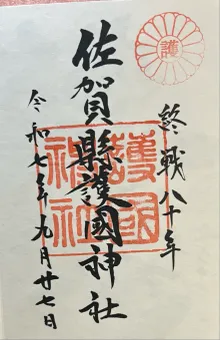 護
終戦八十年
佐賀縣護國神社
護國神社
令和七年九月廿七日